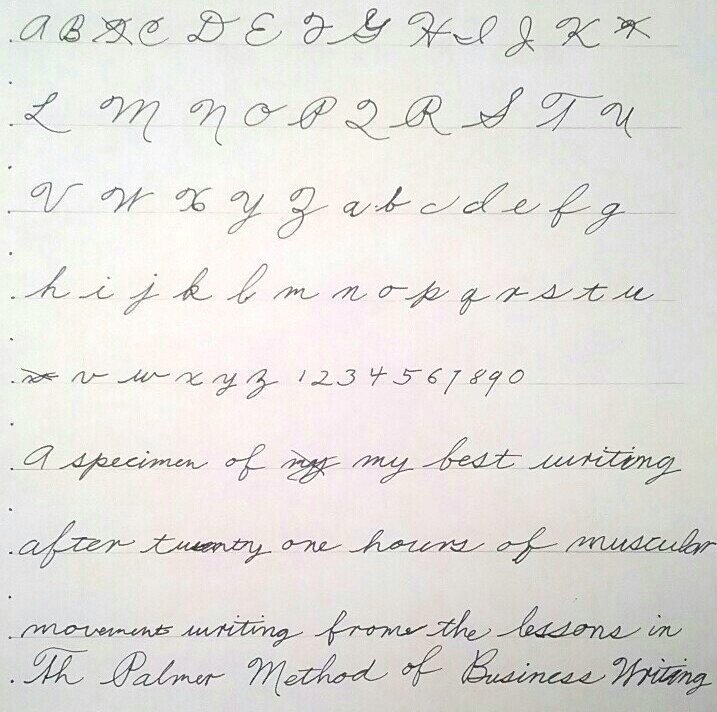 A B C D E F G H I J K
L M N O P Q R S T U
V W X Y Z a b c d e f g
h i j k l m n o p q r s t u
v w x y z 1 2 3 4 5 6 7 8 9 0
A specimen of my best writing
after twenty one hours of muscular
movement writing frome the lessons in
Th Palmer Method of Business Writing